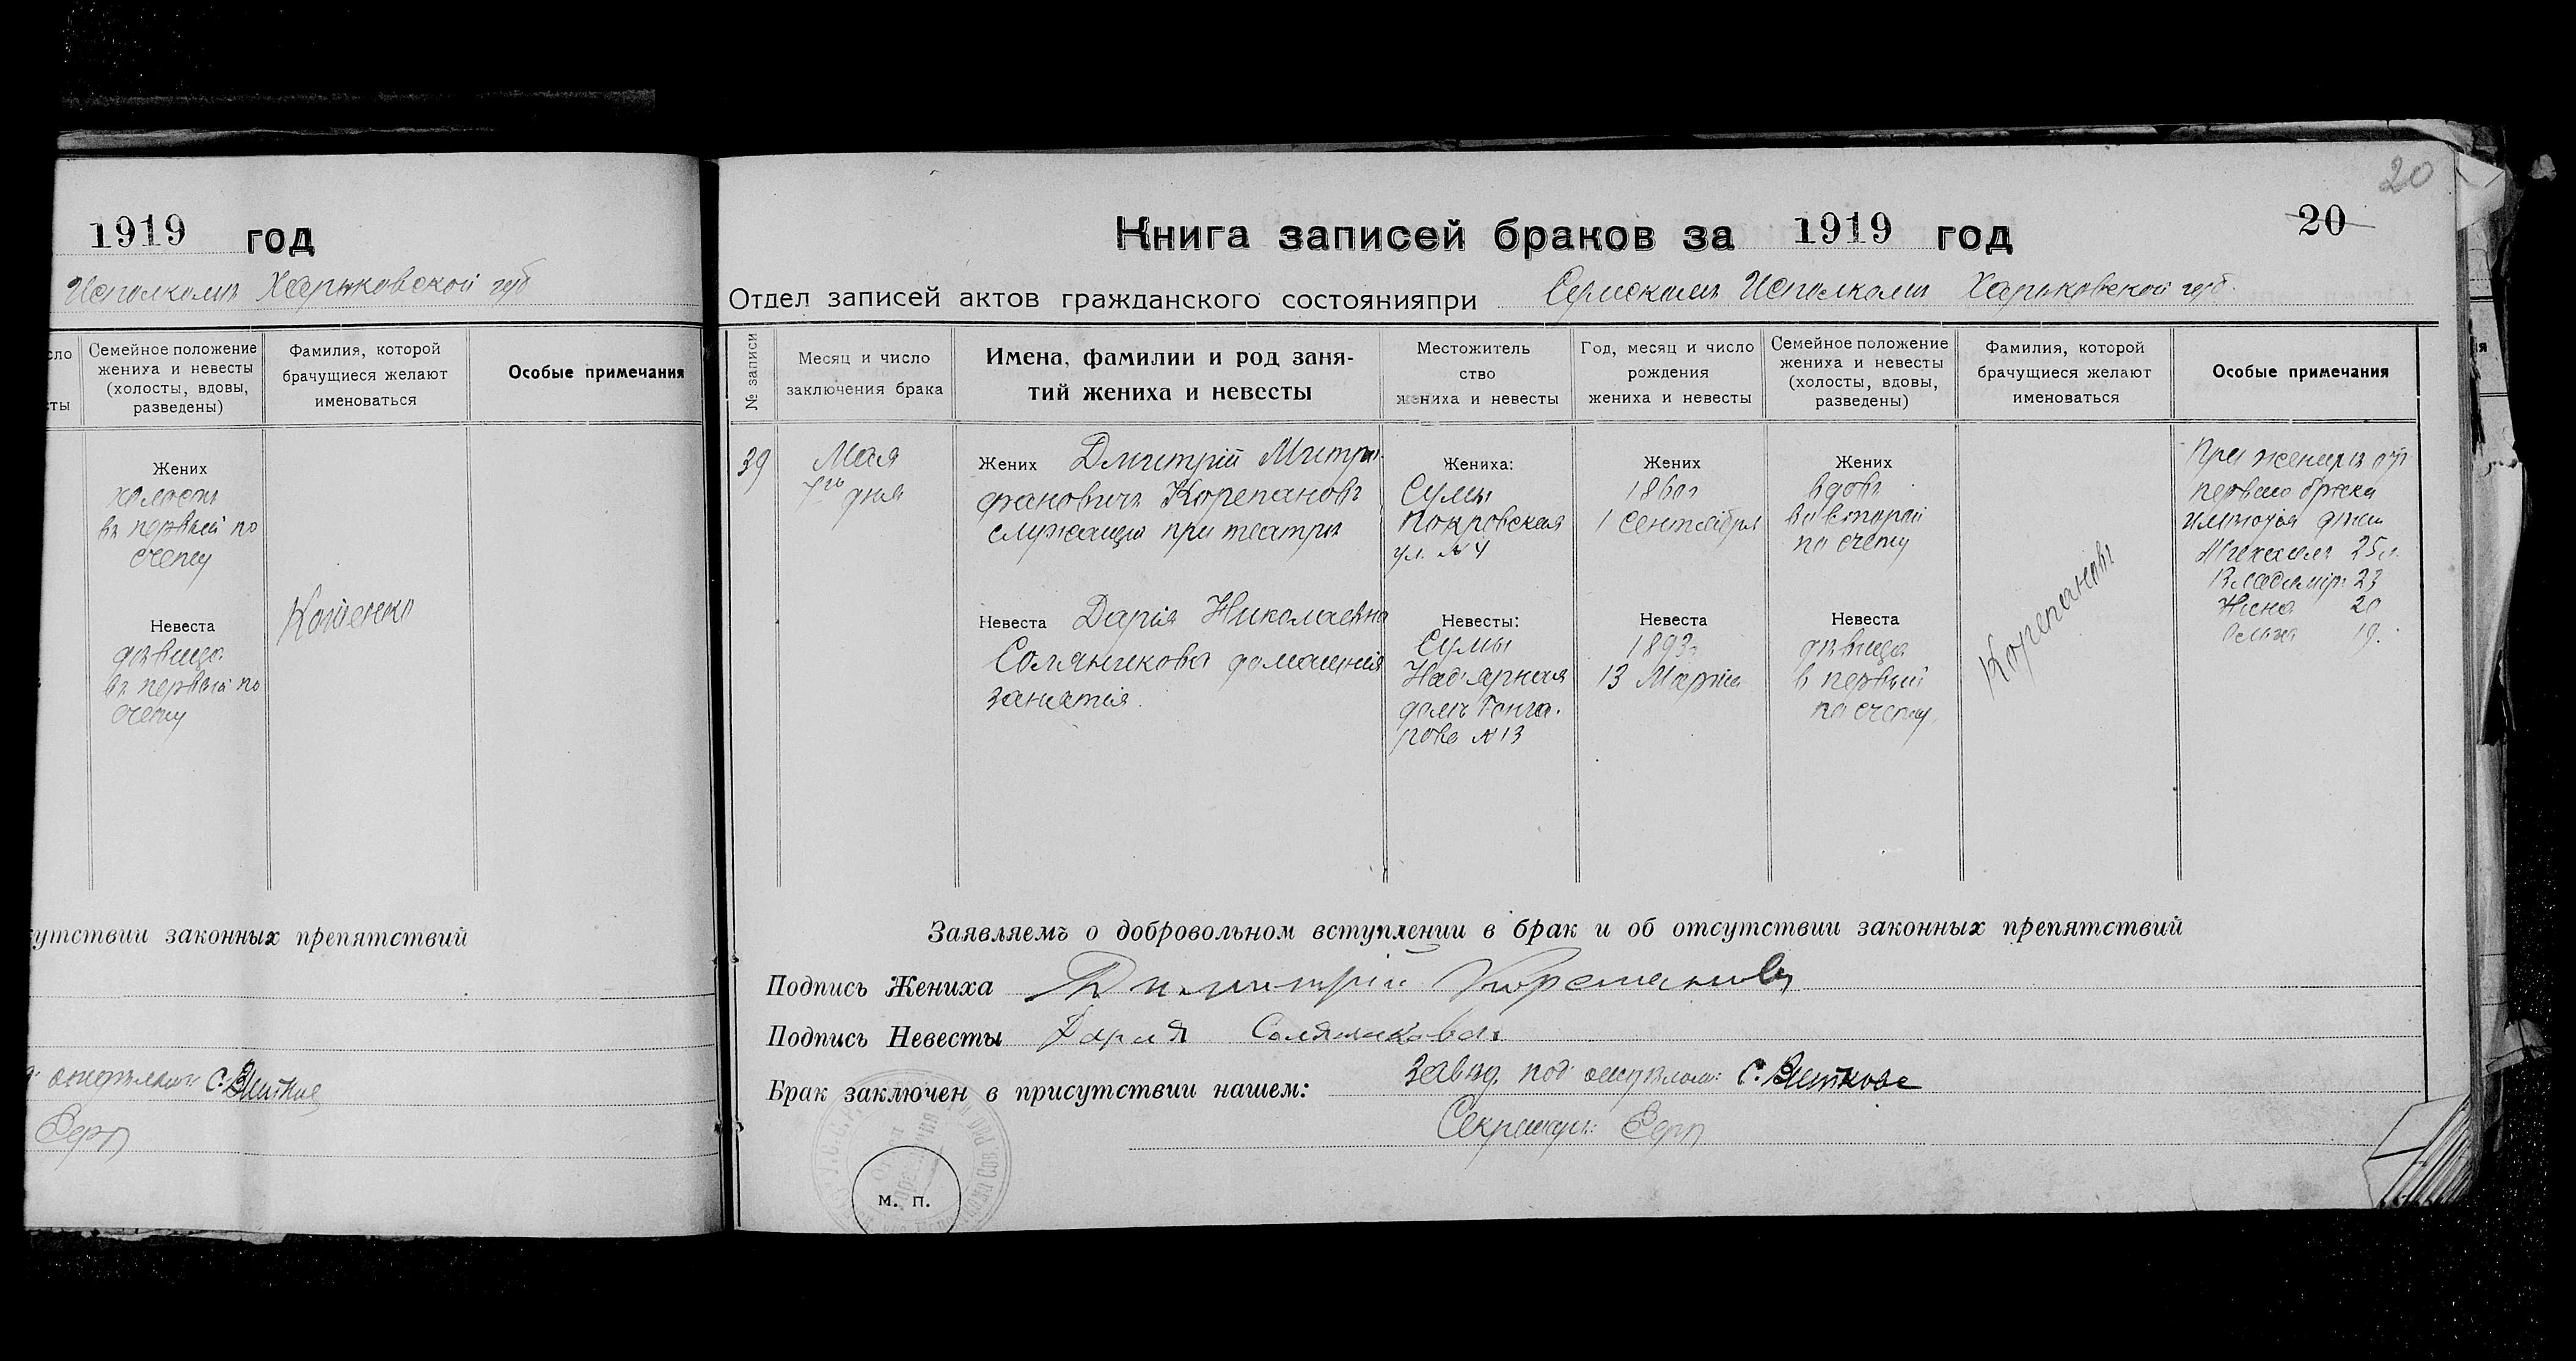 1919 год
Исполкомъ Харьковской губ
Семейное положение
жениха и невесты
(холосты, вдовы,
разведены)
Фамилия, которой
брачущиеся желают
именоваться
Особые примечания
Жених
холостъ
въ первый по
счету
Невеста
дѣвица
въ первый по
счету
Кошенко
сутствии законных препятствий
20
20
Книга записей браков за 1919 год
Отдел записей актов гражданского состоянияпри Сумскомъ Исполкомъ Харьковской губ.
№ записи
Месяц и число
заключения брака
Имена, фамилии и род заня-
тий жениха и невесты
Местожитель
ство
жениха и невесты
Год, месяц и число
рождения
жениха и невесты
Семейное положение
жениха и невесты
(холосты, вдовы,
разведены)
Фамилия, которой
брачущиеся желают
именоваться
Особые примечания
39
Мая
7го дня
Жених Дмитрій Митро-
фановичъ Корепановъ
служащій при театрѣ
Невеста Дарія Николаевна
Соляникова домашнія
занятія.
Жениха:
Сумы
Покровская
ул. № 4
Невесты:
Сумы
Над'ярная
домъ Гонча-
рова № 13
Жених
1860г
1 Сентября
Невеста
1893г
13 Марта
Жених
вдовъ
во второй
по счету
Невеста
дѣвица
в первый
по счету
Корепановъ
При женихѣ от
первого брака
имеются дѣти
Михаилъ 25л.
Владиміръ 23
Нина 20
Ольга 19.
Заявляемъ о добровольном вступлении в брак и об отсутствии законных препятствий
Подпись Жениха Димитрій Корепановъ
Подпись Невесты Дария Соляникова
Брак заключен в присутствии нашем: Завѣд. под'отделом: С.
Секретарь:
м. п.